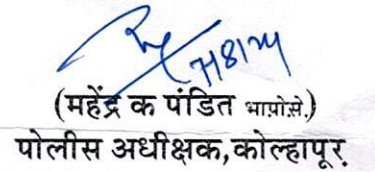 7/8/24
(महेंद्र क पंडित भापोसे.)
पोलीस अधीक्षक, कोल्हापूर.